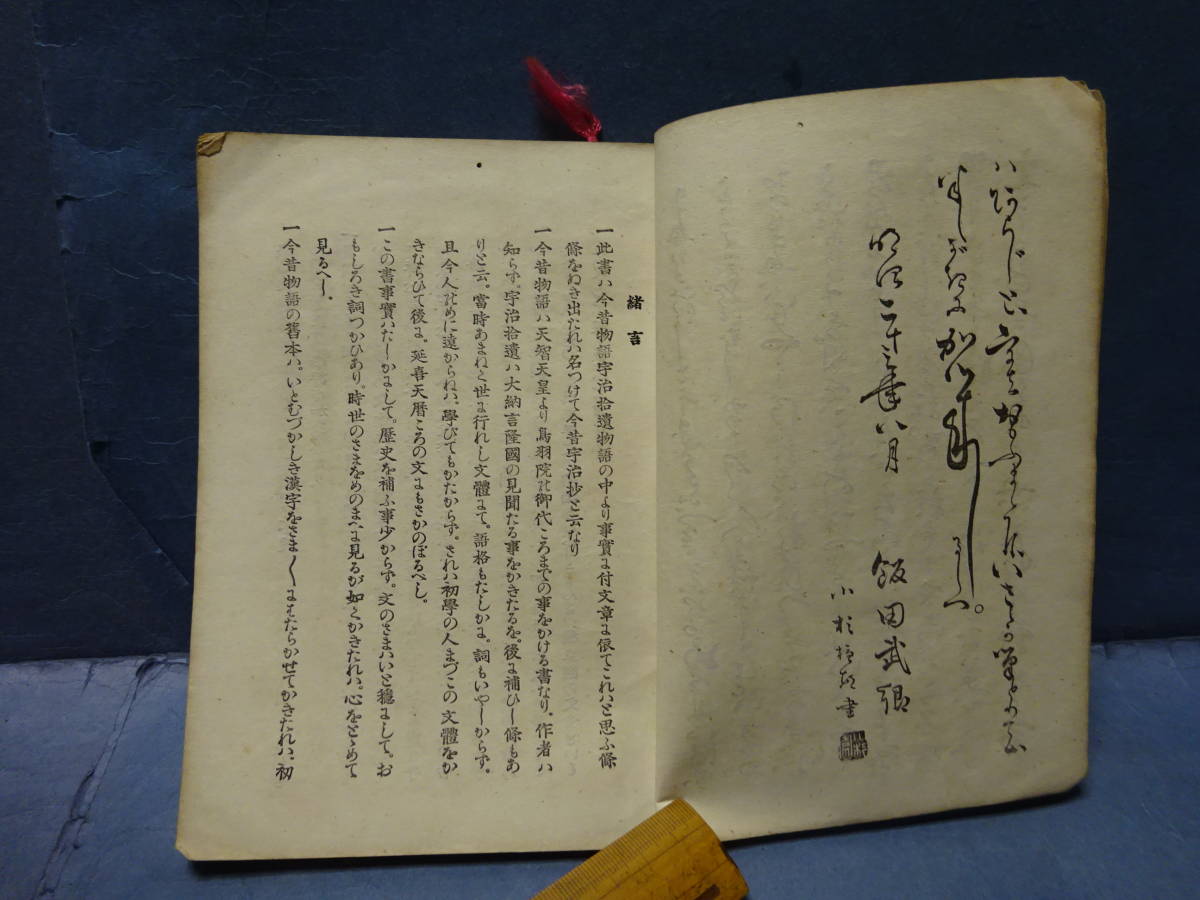 明治二十三年八月
飯田武郷
小杉榲邨書
緒言
一此書ハ今昔物語宇治拾遺物語の中より事實に付文章に依てこれハと思ふ條
條をぬき出たれハ名つけて今昔宇治抄と云なり
一今昔物語ハ天智天皇より鳥羽院の御代ころまでの事をかける書なり。作者ハ
知らず。宇治拾遺ハ大納言隆國の見聞たる事をかきたるを。後に補ひし條もあ
りと云。當時あまねく世に行れし文體にて。語格もたしかに。詞もいやしからず。
且今人のめに遠からねハ。學びてもかたからず。されハ初學の人まづこの文體をか
きならひて後に。延喜天暦ころの文にもさかのぼるべし。
一この書事實ハたしかにして。歴史を補ふ事少からず。文のさまハいと穏にして。お
もしろき詞つかひあり。時世のさまをめのまへに見るが如くかきたれハ。心をとゝめて
見るへし。
一今昔物語の舊本ハ。いとむづかしき漢字をさま〴〵にはたらかせてかきたれハ。初